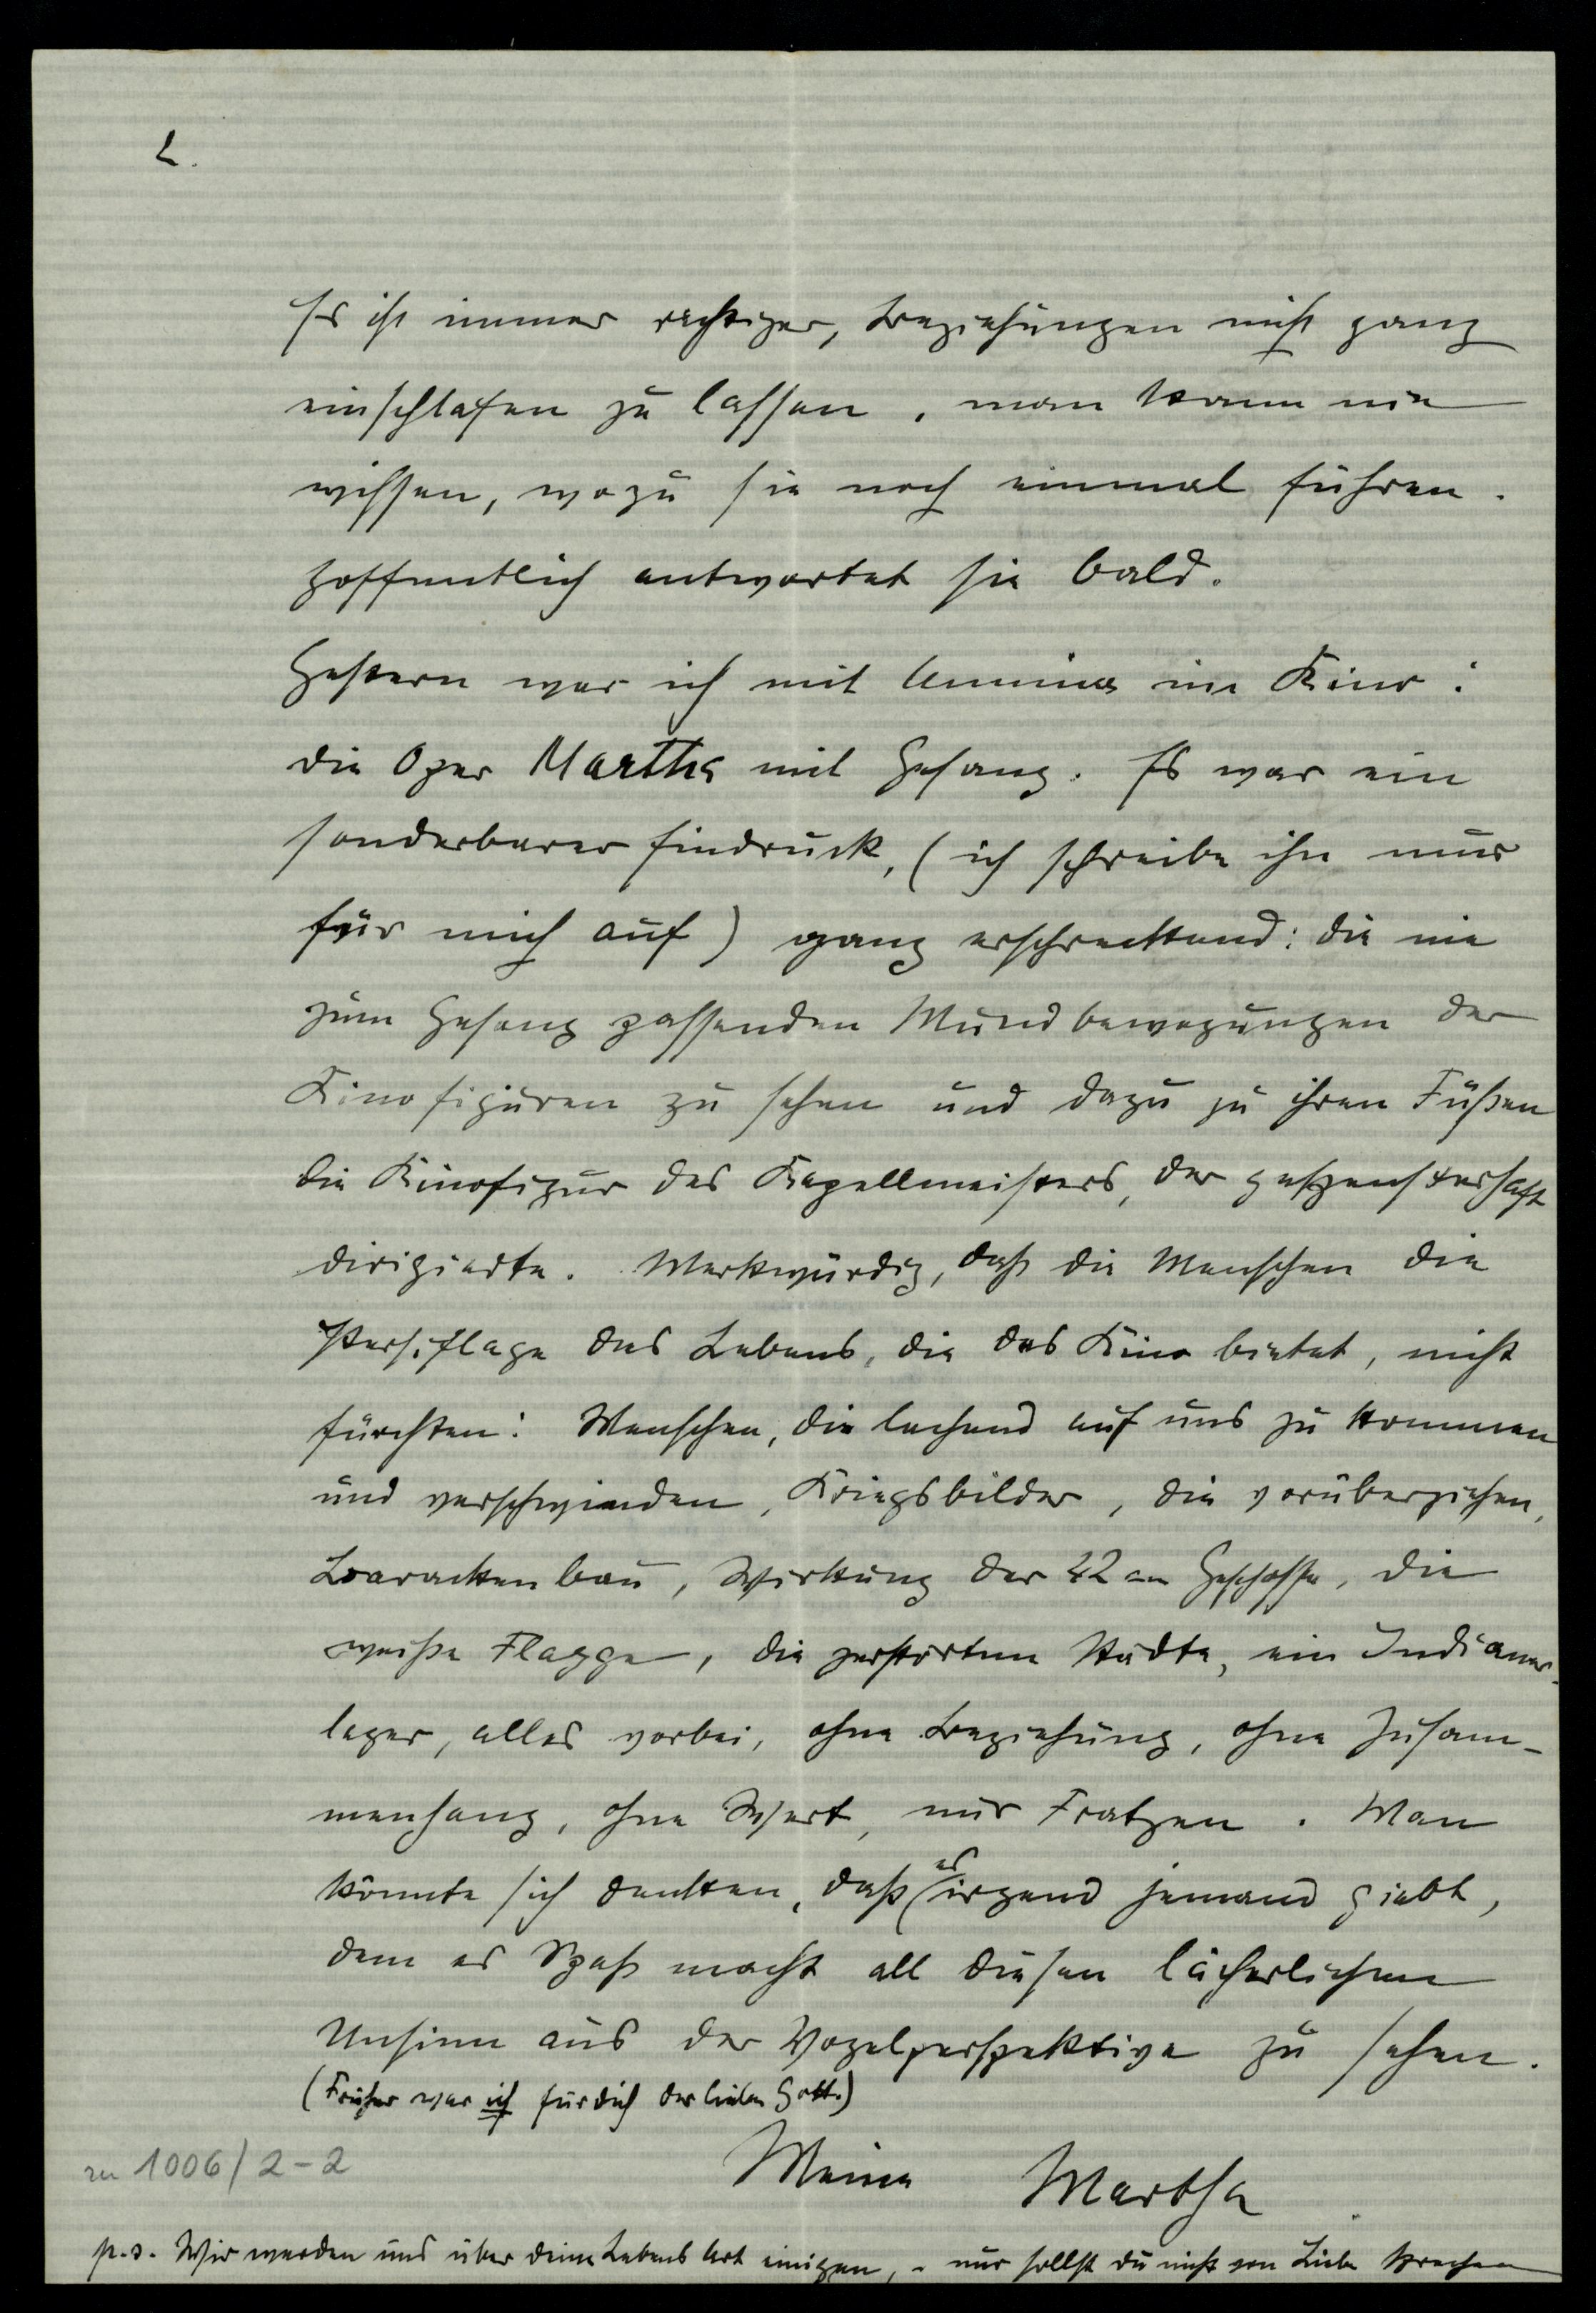 2.
Es ist immer richtiger, Beziehungen nicht ganz
einschlafen zu lassen, man kann nie
wissen, wozu sie noch einmal führen.
Hoffentlich antwortet sie bald.
Gestern war ich mit Annina im Kino:
die Oper Martha mit Gesang. Es war ein
sonderbarer Eindruck, (ich schreibe ihn nur
für mich auf) ganz erschreckend: die nie
zum Gesang passenden Mundbewegungen der
Kinofiguren zu sehen und dazu zu ihren Füßen
die Kinofigur des Kapellmeisters, der gespensterhaft
dirigierte. Merkwürdig, daß die Menschen die
Persiflage des Lebens, die das Kino bietet, nicht
fürchten: Menschen, die lachend auf uns zu kommen
und verschwinden, Kriegsbilder, die vorüberziehen,
Barackenbau, Wirkung der 42 cm Geschosse, die
weiße Flagge, die zerstörten Städte, ein Indianer-
lager, alles vorbei, ohne Beziehung, ohne Zusam-
menhang, ohne Wert, nur Fratzen. Man
könnte sich denken, daß es irgend jemand giebt,
dem es Spaß macht all diesen lächerlichen
Unsinn aus der Vogelperspektive zu sehen.
(Früher war ich für dich der liebe Gott.)
Meine Martha
zu 1006/2-2
p.s. Wir werden uns über deine Lebens Art einigen, - nur sollst du nicht von Liebe sprechen